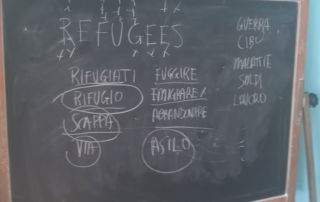 REFUGEES
RIFUGIATI
RIFUGIO
SCAPPA
VIA
FUGGIRE
EMIGRARE
ABBANDONARE
ASILO
GUERRA
CIBO
MALATTIE
SOLDI
LAVORO